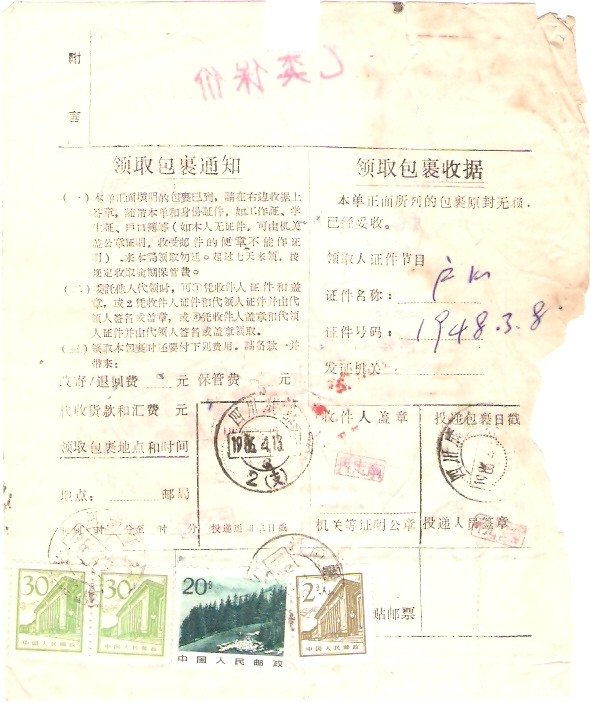 附
言
乙类保价
领取包裹通知
(一)本单正面填明的包裹已到,请在右边收据上
签章,随带本单和身份証件,如工作证、学
生証、戶口簿等(如本人无证件,可由机关
盖公章证明,收受邮件的便章不能作证
明)来本局领取勿延。超过七天来领,按
规定收取逾期保管费。
(二)委託他人代领时,可①凭收件人证件和盖
章,或2凭收件人证件和代领人证件并由代
领人签名或盖章,或③凭收件人盖章和代领
人证件并由代领人签名或盖章领取。
(三)领取本包裹时还要付下列费用。請备款一并
带来:
改寄/退回费 元 保管费 元
代收货款和汇费 元
领取包裹地点和时间
地点: 邮局
时间 时 分至 时 分
四川
1986.4.13
2(支)
投递
日戳
领取包裹收据
本单正面所列的包裹原封无损,
已经妥收。
领取人证件节目
证件名称:户口
证件号码:1948.3.8.
发证机关
收件人盖章
机关等证明公章
投递包裹日戳
四川
投递人员签章
贴邮票
30分
中国人民邮政
30分
中国人民邮政
20分
中国人民邮政
2分
中国人民邮政